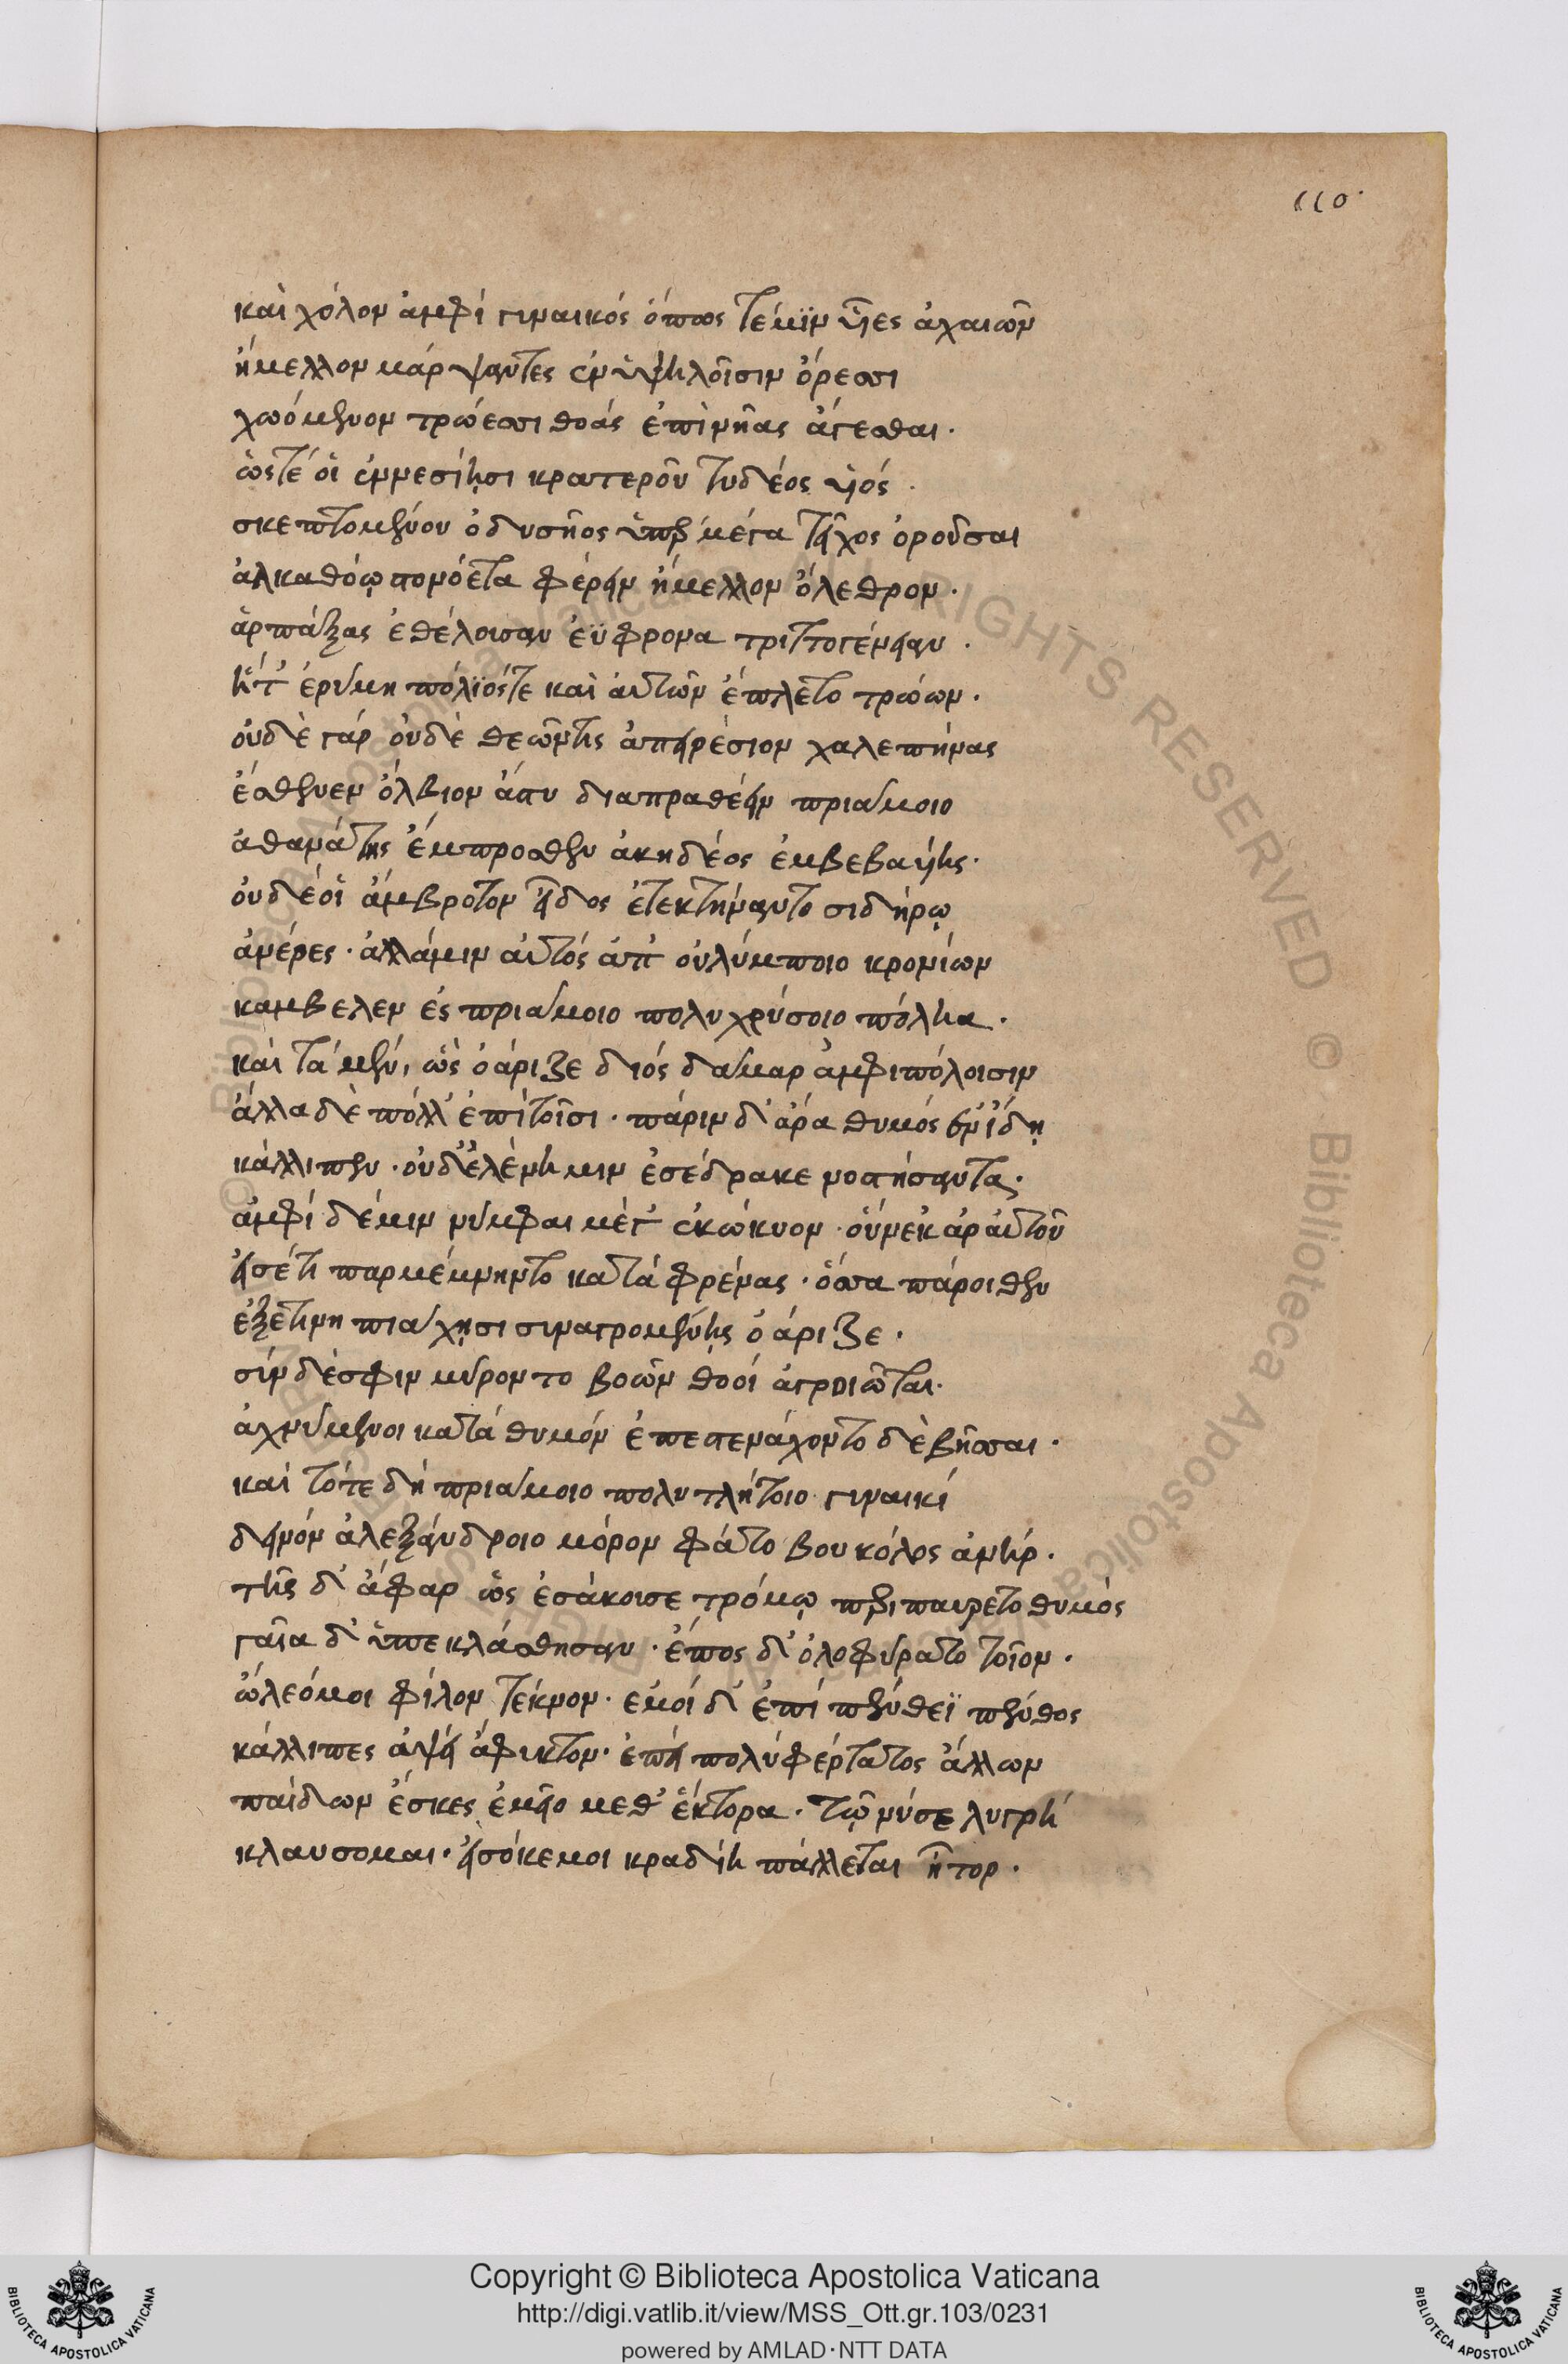 110
καὶ χόλον ἀμφὶ γυναικός ὅπως τέ μϊν υἷες ἀχαιῶν
ἤμελλον μάρψαντες ἐν ὑψηλοῖσιν ὄρεσσι
χωόμενον τρώεσσι θοὰς ἐπὶ νῆας ἄγεσθαι.
ὥς τέ οἱ ἐννεσίῃσι κρατεροῦ τυδέος υἱός.
σκεπτομένου ὀδυσῆος ὑπὲρ μέγα τεῖχος ὀροῦσαι
ἀλκαθόῳ πονόετα φέρειν ἤμελλον ὄλεθρον.
ἁρπάξας ἐθέλουσαν ἐΰφρονα τριττογένειαν.
ἥτ' ἔρυμη πόλϊός τε καὶ αὐτῶν ἔπλετο τρώων.
οὐδὲ γὰρ οὐδὲ θεῶν τις ἀπειρέσιον χαλεπήνας
ἔσθενεν ὄλβιον ἄστυ διαπραθέειν πριάμοιο
ἀθανάτης ἔμπροσθεν ἀκηδέος ἐμβεβαυίης.
οὐδέ οἱ ἄμβροτον εἶδος ἐτεκτήναντο σιδήρῳ
ἀνέρες. ἀλλά μιν αὐτός ἀπ' οὐλύμποιο κρονίων
καμβελεν ἐς πριάμοιο πολυχρύσοιο πόληα.
καὶ τὰ μὲν, ὣς ὀάριζε διός δάμαρ ἀμφιπόλοισιν
ἄλλα δὲ πόλλ' ἐπὶ τοῖσι. πάριν δ' ἄρα θυμός ἐν ἴδῃ
κάλλιπεν. οὐδ' ἑλένη μιν ἐσέδρακε νοστήσαντα.
ἀμφὶ δέ μιν νύμφαι μέγ' ἐκώκυον. οὕνεκ ἄρ αὐτοῦ
εἰσέτι παρμέμνηντο κατὰ φρένας. ὅσσα πάροιθεν
ἐξέτι νηπιάχῃσι συναγρομένῃς ὀάριζε.
σὺν δέ σφιν μύροντο βοῶν θοοὶ ἀγροιῶται.
ἀχνύμενοι κατὰ θυμόν ἐπεστενάχοντο δὲ βῆσσαι.
καὶ τότε δὴ πριάμοιο πολυτλήτοιο γυναικὶ
δεινόν ἀλεξάνδροιο μόρον φάτο βουκόλος ἀνήρ.
τῆς δ' ἄφαρ ὡς ἐσάκουσε τρόμῳ περιπαύρετο θυμός
γαῖα δ' ὑπεκλάσθησαν. ἔπος δ' ὀλοφύρατο τοῖον.
ὤλεό μοι φίλον τέκνον. ἐμοί δ' ἐπὶ πένθεϊ πένθος
κάλλιπες ἀψεὶ ἄφυκτον. ἐπεὶ πολύ φέρτατος ἄλλων
παίδων ἔσκες ἐμεῖο μεθ' ἕκτορα. τῷ νύ σε λυγρή
κλαυσομαι. εἰσόκε μοι κραδίη πάλλεται ἦτορ.
Copyright © Biblioteca Apostolica Vaticana
http://digi.vatlib.it/view/MSS_Ott.gr.103/0231
powered by AMLAD·NTT DATA